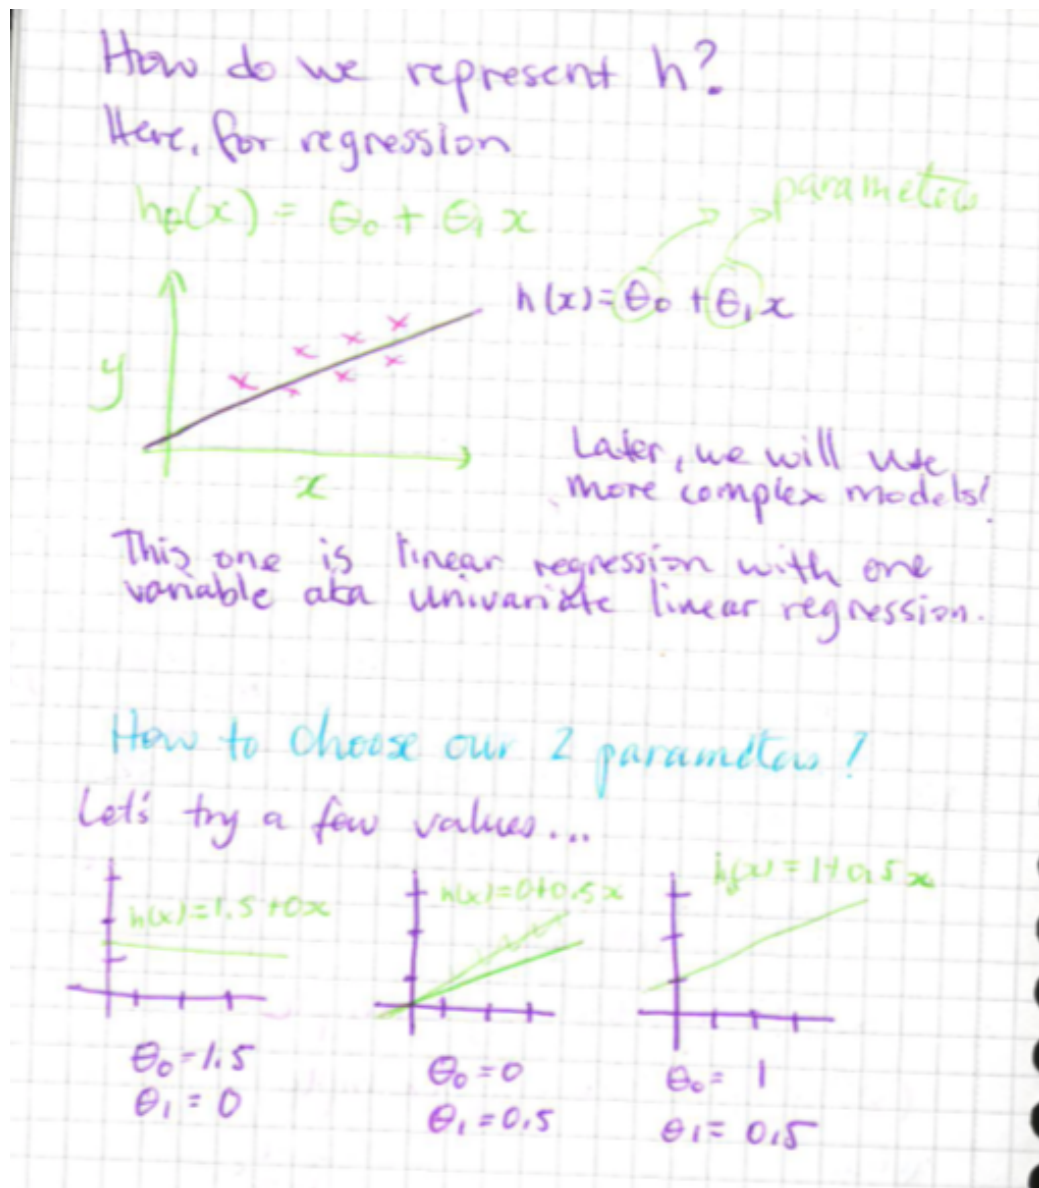 How do we represent h?
Here, for regression
hθ(x) = θ₀ + θ₁ x
parameters
h(x) = θ₀ + θ₁ x
y
x
Later, we will use
more complex models!
This one is linear regression with one
variable aka univariate linear regression.
How to choose our 2 parameters?
Let's try a few values...
h(x) = 1.5 + 0x
h(x) = 0 + 0.5x
h(x) = 1 + 0.5x
θ₀ = 1.5
θ₁ = 0
θ₀ = 0
θ₁ = 0.5
θ₀ = 1
θ₁ = 0.5